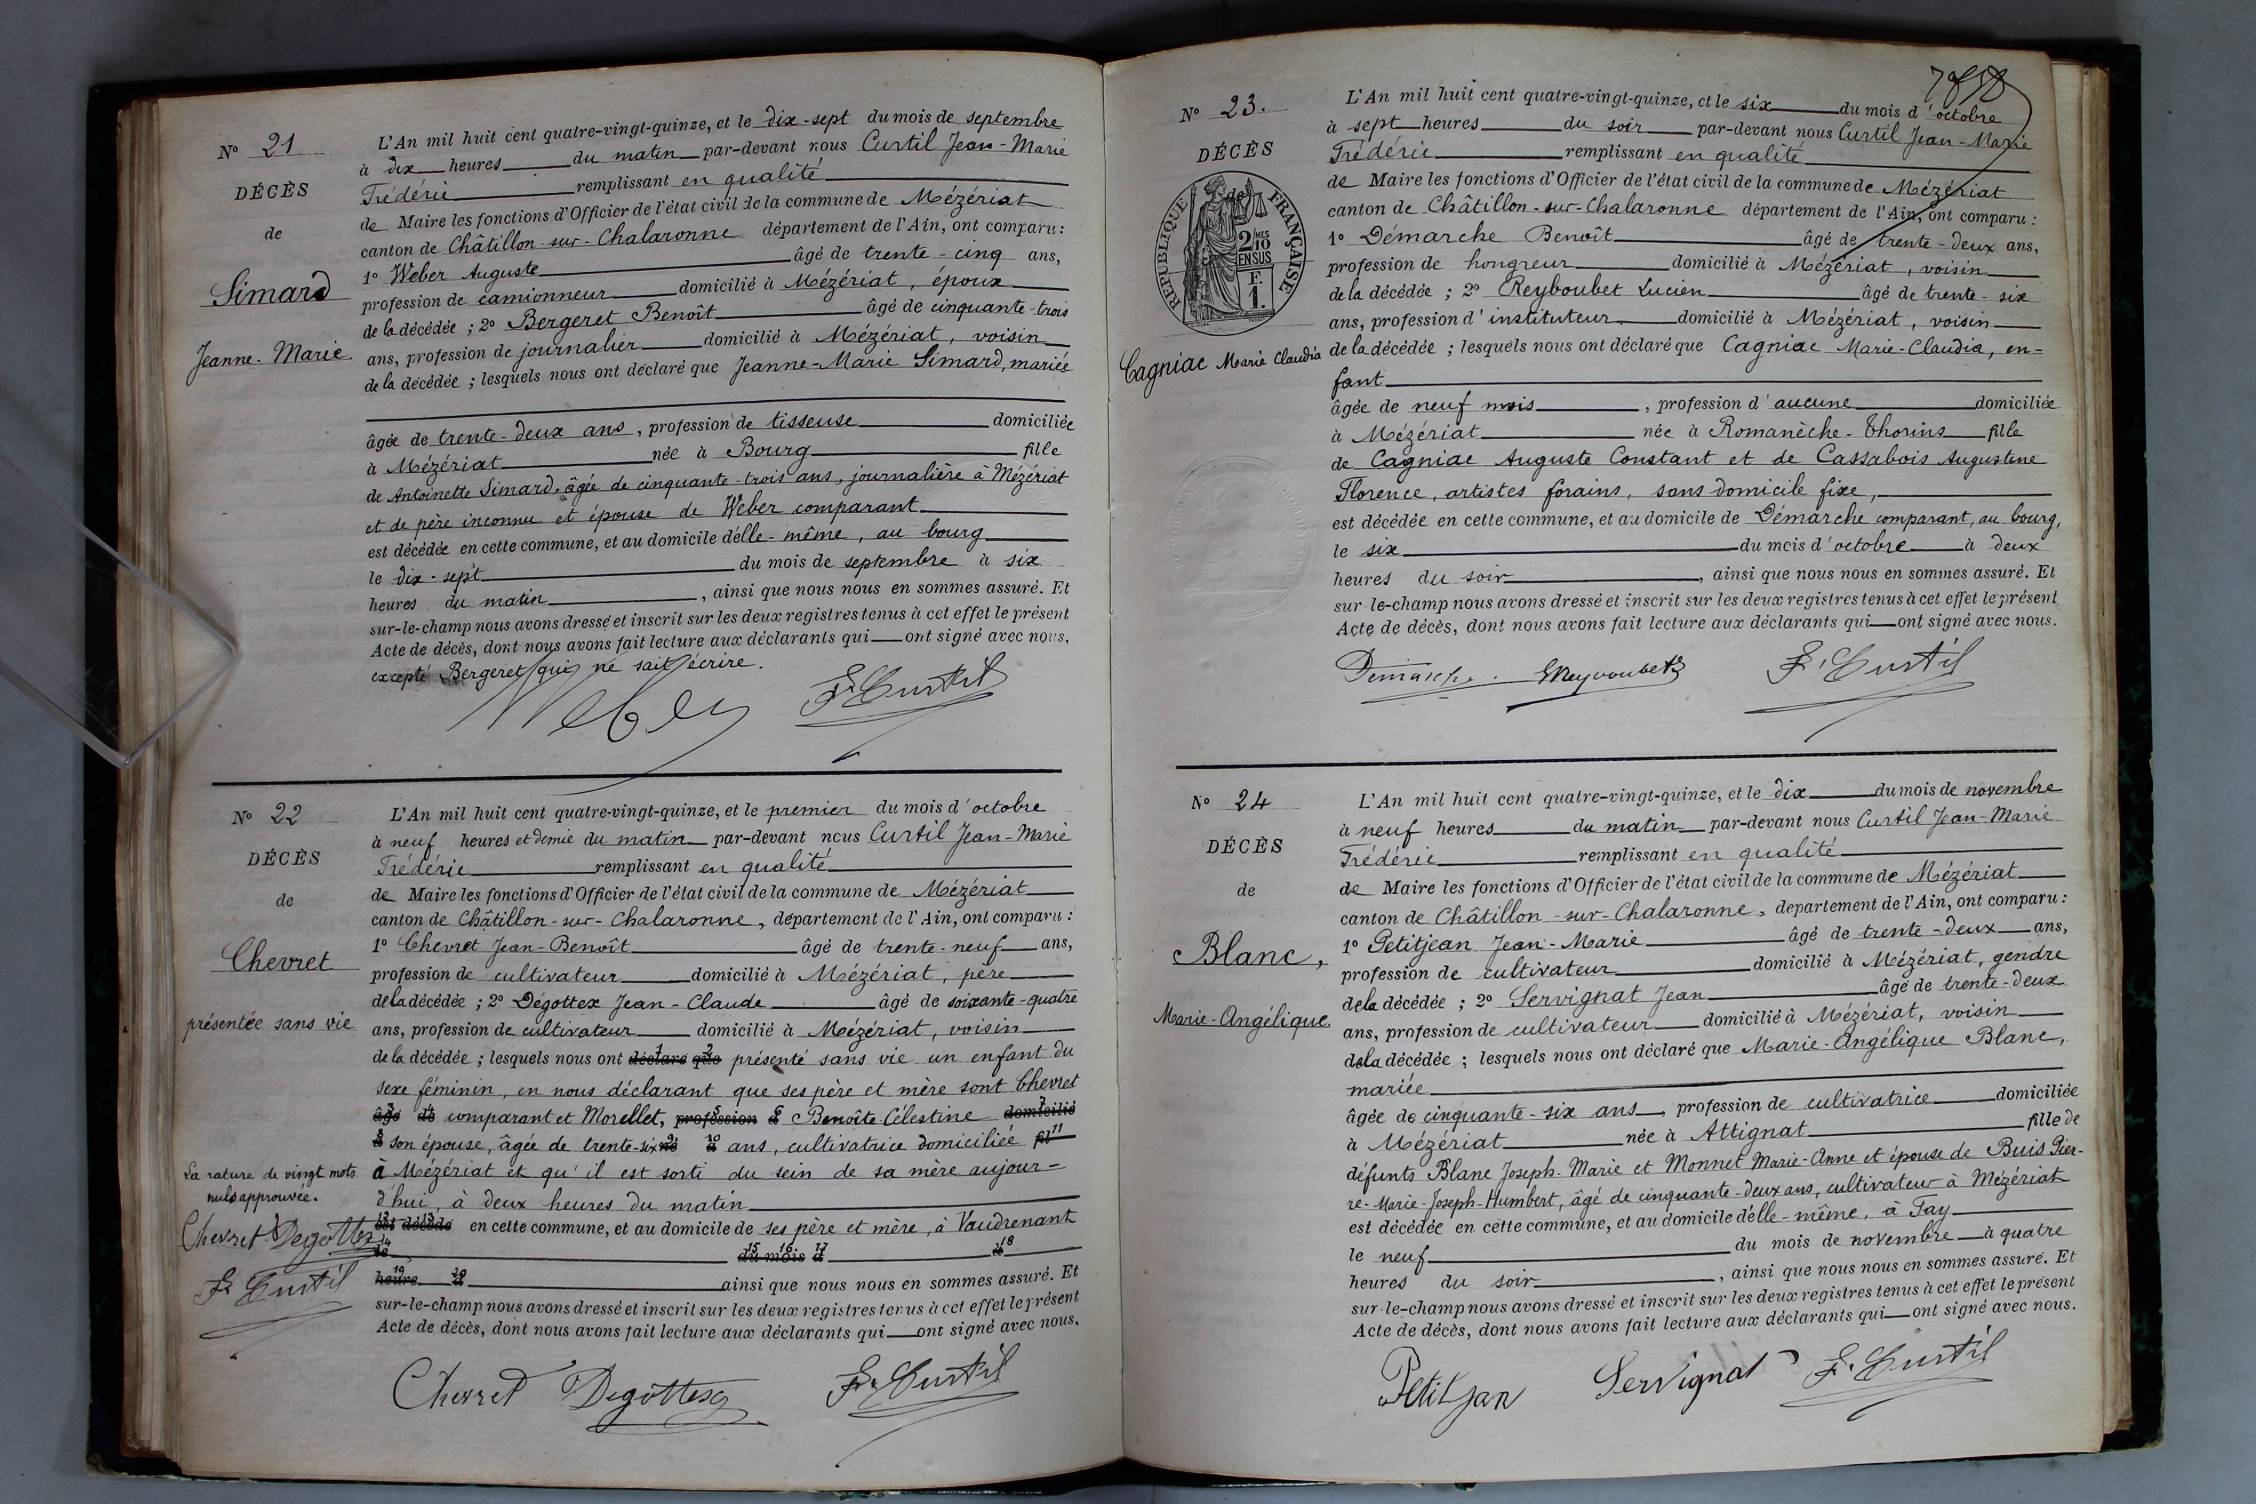 No 21
DÉCÈS
de
Simard
Jeanne-Marie
L'An mil huit cent quatre-vingt-quinze, et le dix-sept du mois de septembre
à dix heures du matin par-devant nous Curtil Jean-Marie
Frédéric remplissant en qualité
de Maire les fonctions d'Officier de l'état civil de la commune de Mézériat
canton de Châtillon-sur-Chalaronne département de l'Ain, ont comparu :
1º Weber Auguste âgé de trente-cinq ans,
profession de camionneur domicilié à Mézériat, époux
de la décédée ; 2º Bergeret Benoît âgé de cinquante-trois
ans, profession de journalier domicilié à Mézériat, voisin
de la décédée ; lesquels nous ont déclaré que Jeanne-Marie Simard, mariée
âgée de trente-deux ans, profession de tisseuse domiciliée
à Mézériat née à Bourg fille
de Antoinette Simard, âgée de cinquante-trois ans, journalière à Mézériat
et de père inconnu et épouse de Weber comparant
est décédée en cette commune, et au domicile d'elle-même, au bourg
le dix-sept du mois de septembre à six
heures du matin, ainsi que nous nous en sommes assuré. Et
sur-le-champ nous avons dressé et inscrit sur les deux registres tenus à cet effet le présent
Acte de décès, dont nous avons fait lecture aux déclarants qui ont signé avec nous,
excepté Bergeret qui ne sait écrire.
Weber F. Curtil
No 22
DÉCÈS
de
Chevret
présentée sans vie
L'An mil huit cent quatre-vingt-quinze, et le premier du mois d'octobre
à neuf heures et demie du matin par-devant nous Curtil Jean-Marie
Frédéric remplissant en qualité
de Maire les fonctions d'Officier de l'état civil de la commune de Mézériat
canton de Châtillon-sur-Chalaronne, département de l'Ain, ont comparu :
1º Chevret Jean-Benoît âgé de trente-neuf ans,
profession de cultivateur domicilié à Mézériat, père
de la décédée ; 2º Dégottex Jean-Claude âgé de soixante-quatre
ans, profession de cultivateur domicilié à Mézériat, voisin
de la décédée ; lesquels nous ont déclaré 1 que 2 présenté sans vie un enfant du
sexe féminin, en nous déclarant que ses père et mère sont Chevret
âgé 3 de 4 comparant et Morellet, profession 5 d 6 Benoîte Célestine domicilié 7
à 8 son épouse, âgée de trente-six né 9 à 10 ans, cultivatrice domiciliée fil 11
à Mézériat et qu'il est sorti du sein de sa mère aujour-
d'hui, à deux heures du matin
est 12 décédé 13 en cette commune, et au domicile de ses père et mère, à Vaudrenant
le 14 du 15 mois 16 d 17 à 18
heure 19 d 20 ainsi que nous nous en sommes assuré. Et
sur-le-champ nous avons dressé et inscrit sur les deux registres tenus à cet effet le présent
Acte de décès, dont nous avons fait lecture aux déclarants qui ont signé avec nous.
La rature de vingt mots
nuls approuvée.
Chevret Degottex
F. Curtil
Chevret Degottex F. Curtil
7
No 23.
DÉCÈS
de
RÉPUBLIQUE FRANÇAISE
2 MES
10
EN SUS
F.
1.
Cagniac Marie Claudia
L'An mil huit cent quatre-vingt-quinze, et le six du mois d'octobre
à sept heures du soir par-devant nous Curtil Jean-Marie
Frédéric remplissant en qualité
de Maire les fonctions d'Officier de l'état civil de la commune de Mézériat
canton de Châtillon-sur-Chalaronne département de l'Ain, ont comparu :
1º Démarche Benoît âgé de trente-deux ans,
profession de hongreur domicilié à Mézériat, voisin
de la décédée ; 2º Reyboubet Lucien âgé de trente-six
ans, profession d'instituteur domicilié à Mézériat, voisin
de la décédée ; lesquels nous ont déclaré que Cagniac Marie-Claudia, en=
fant
âgée de neuf mois, profession d'aucune domiciliée
à Mézériat née à Romanèche-Thorins fille
de Cagniac Auguste Constant et de Cassabois Augustine
Florence, artistes forains, sans domicile fixe,
est décédée en cette commune, et au domicile de Démarche comparant, au bourg,
le six du mois d'octobre à deux
heures du soir, ainsi que nous nous en sommes assuré. Et
sur-le-champ nous avons dressé et inscrit sur les deux registres tenus à cet effet le présent
Acte de décès, dont nous avons fait lecture aux déclarants qui ont signé avec nous.
Démarche. F. Curtil
No 24
DÉCÈS
de
Blanc,
Marie-Angélique.
L'An mil huit cent quatre-vingt-quinze, et le dix du mois de novembre
à neuf heures du matin par-devant nous Curtil Jean-Marie
Frédéric remplissant en qualité
de Maire les fonctions d'Officier de l'état civil de la commune de Mézériat
canton de Châtillon-sur-Chalaronne, département de l'Ain, ont comparu :
1º Petitjean Jean-Marie âgé de trente-deux ans,
profession de cultivateur domicilié à Mézériat, gendre
de la décédée ; 2º Servignat Jean âgé de trente-deux
ans, profession de cultivateur domicilié à Mézériat, voisin
de la décédée ; lesquels nous ont déclaré que Marie-Angélique Blanc,
mariée
âgée de cinquante-six ans, profession de cultivatrice domiciliée
à Mézériat née à Attignat fille de
défunts Blanc Joseph-Marie et Monnet Marie-Anne et épouse de Buis Pier-
re-Marie-Joseph-Humbert, âgé de cinquante-deux ans, cultivateur à Mézériat
est décédée en cette commune, et au domicile d'elle-même, à Fay
le neuf du mois de novembre à quatre
heures du soir, ainsi que nous nous en sommes assuré. Et
sur-le-champ nous avons dressé et inscrit sur les deux registres tenus à cet effet le présent
Acte de décès, dont nous avons fait lecture aux déclarants qui ont signé avec nous.
Petitjean Servignat F. Curtil